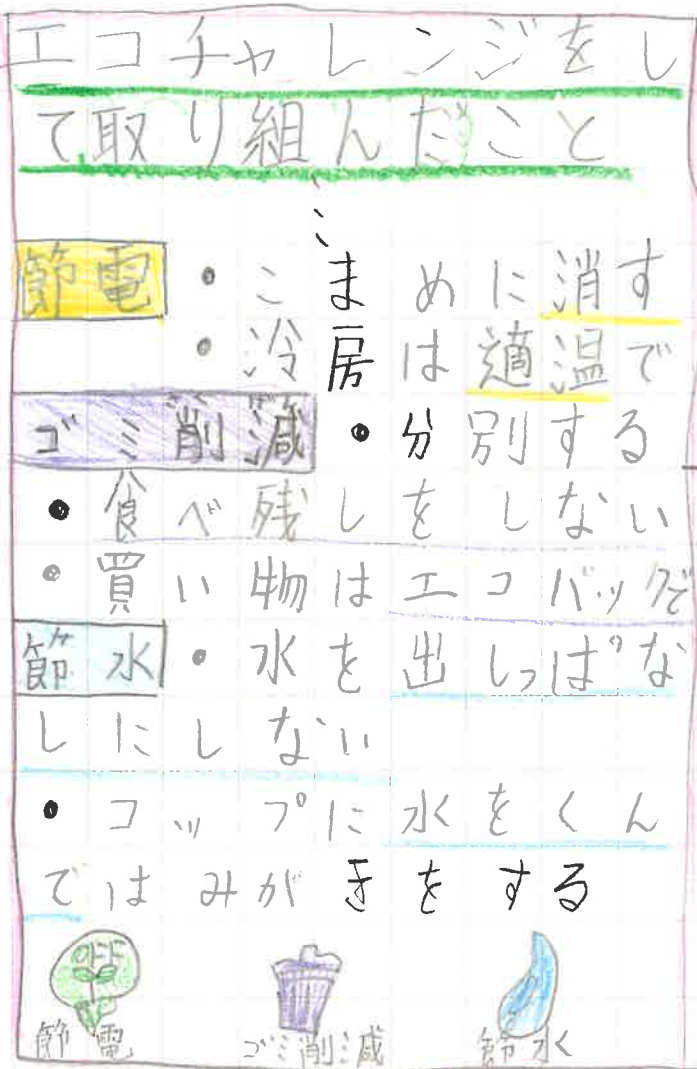 エコチャレンジをし
て取り組んだこと
節電・こまめに消す
・冷房は適温で
ゴミ削減・分別する
・食べ残しをしない
・買い物はエコバックで
節水・水を出しっぱな
しにしない
・コップに水をくん
ではみがきをする
OFF
節電 ゴミ削減 節水